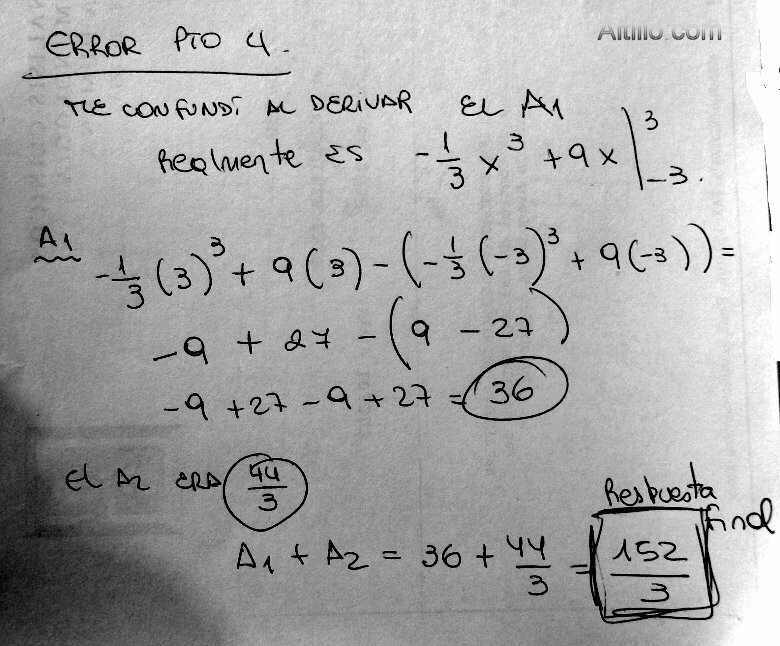 Altillo.com
ERROR PTO 4.
ME CONFUNDÍ AL DERIVAR EL A1
Realmente ES -1/3 x^3 + 9x |^3_-3.
A1
-1/3 (3)^3 + 9(3) - (-1/3 (-3)^3 + 9(-3)) =
-9 + 27 - (9 - 27)
-9 + 27 - 9 + 27 = 36
El A2 ERA 44/3
Respuesta final
A1 + A2 = 36 + 44/3 = 152/3